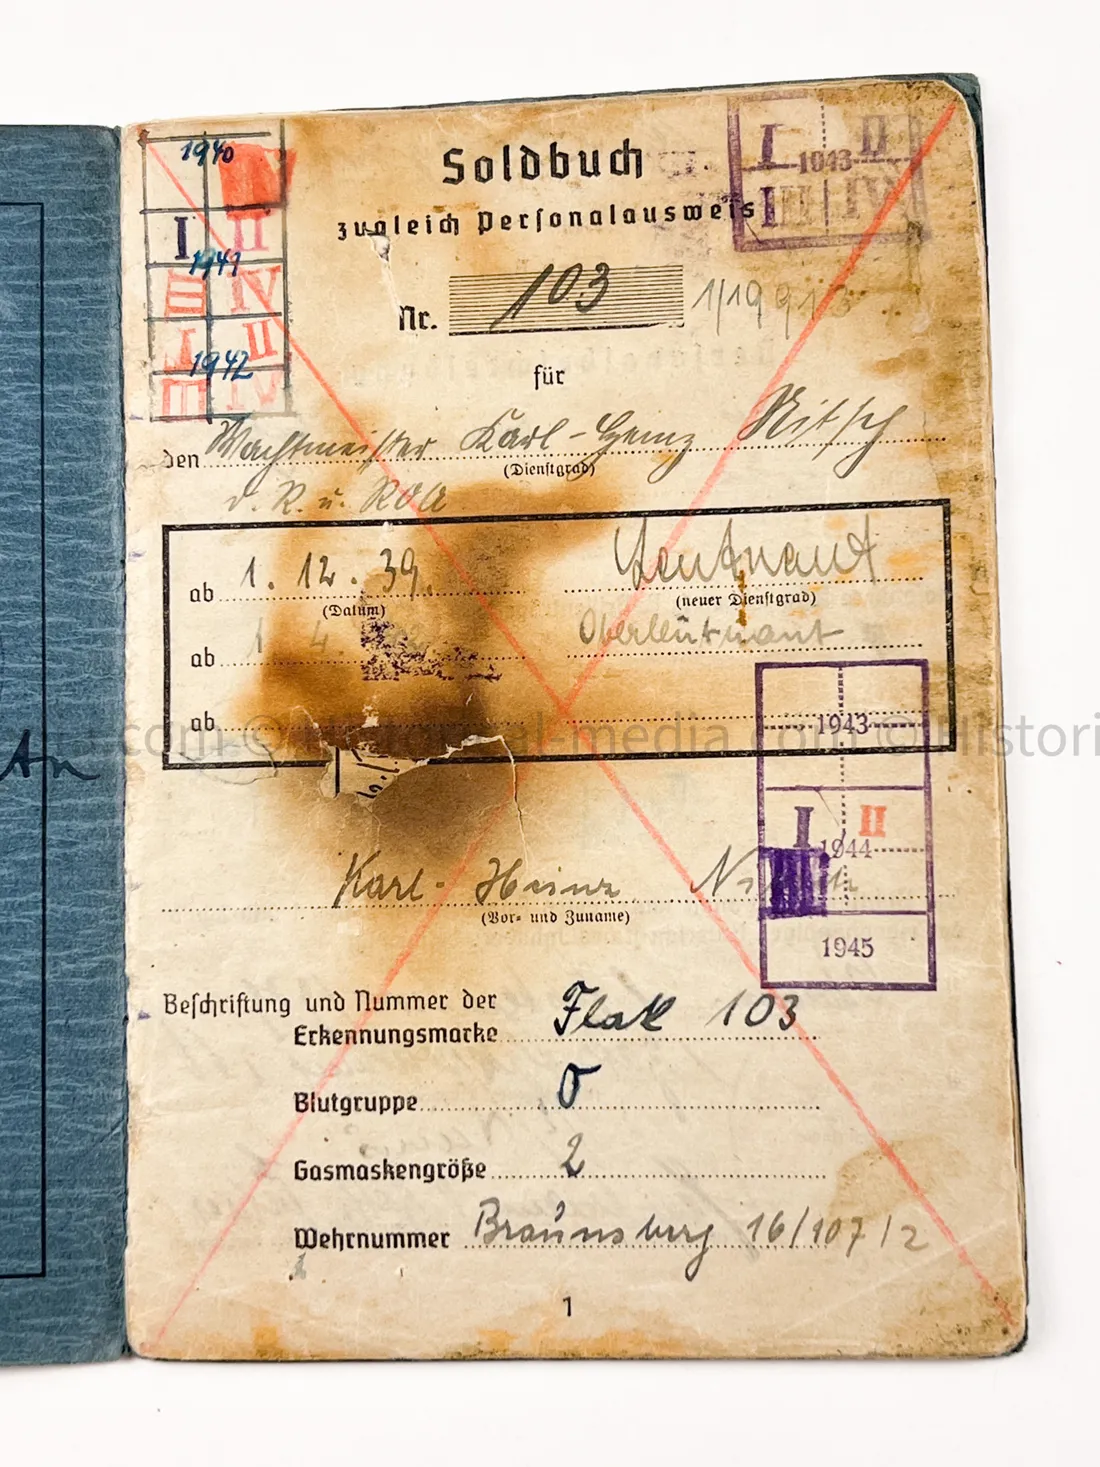 1940
I II
1941
III IV
I II
1942
III IV
I II
1943
III IV
Soldbuch
zugleich Personalausweis
Nr. 103 1/19
für
den Wachtmeister Karl-Heinz Nitsch
(Dienstgrad)
d. R. u. ROA
ab 1. 12. 39. Leutnant
(Datum) (neuer Dienstgrad)
ab 1. 4. Oberleutnant
ab
1943
I II
1944
1945
An
Karl-Heinz
(Vor- und Zuname)
Beschriftung und Nummer der
Erkennungsmarke Flak 103
Blutgruppe O
Gasmaskengröße 2
Wehrnummer Braunsberg 16/107/2
1
.com © Historical-media.com © Histori